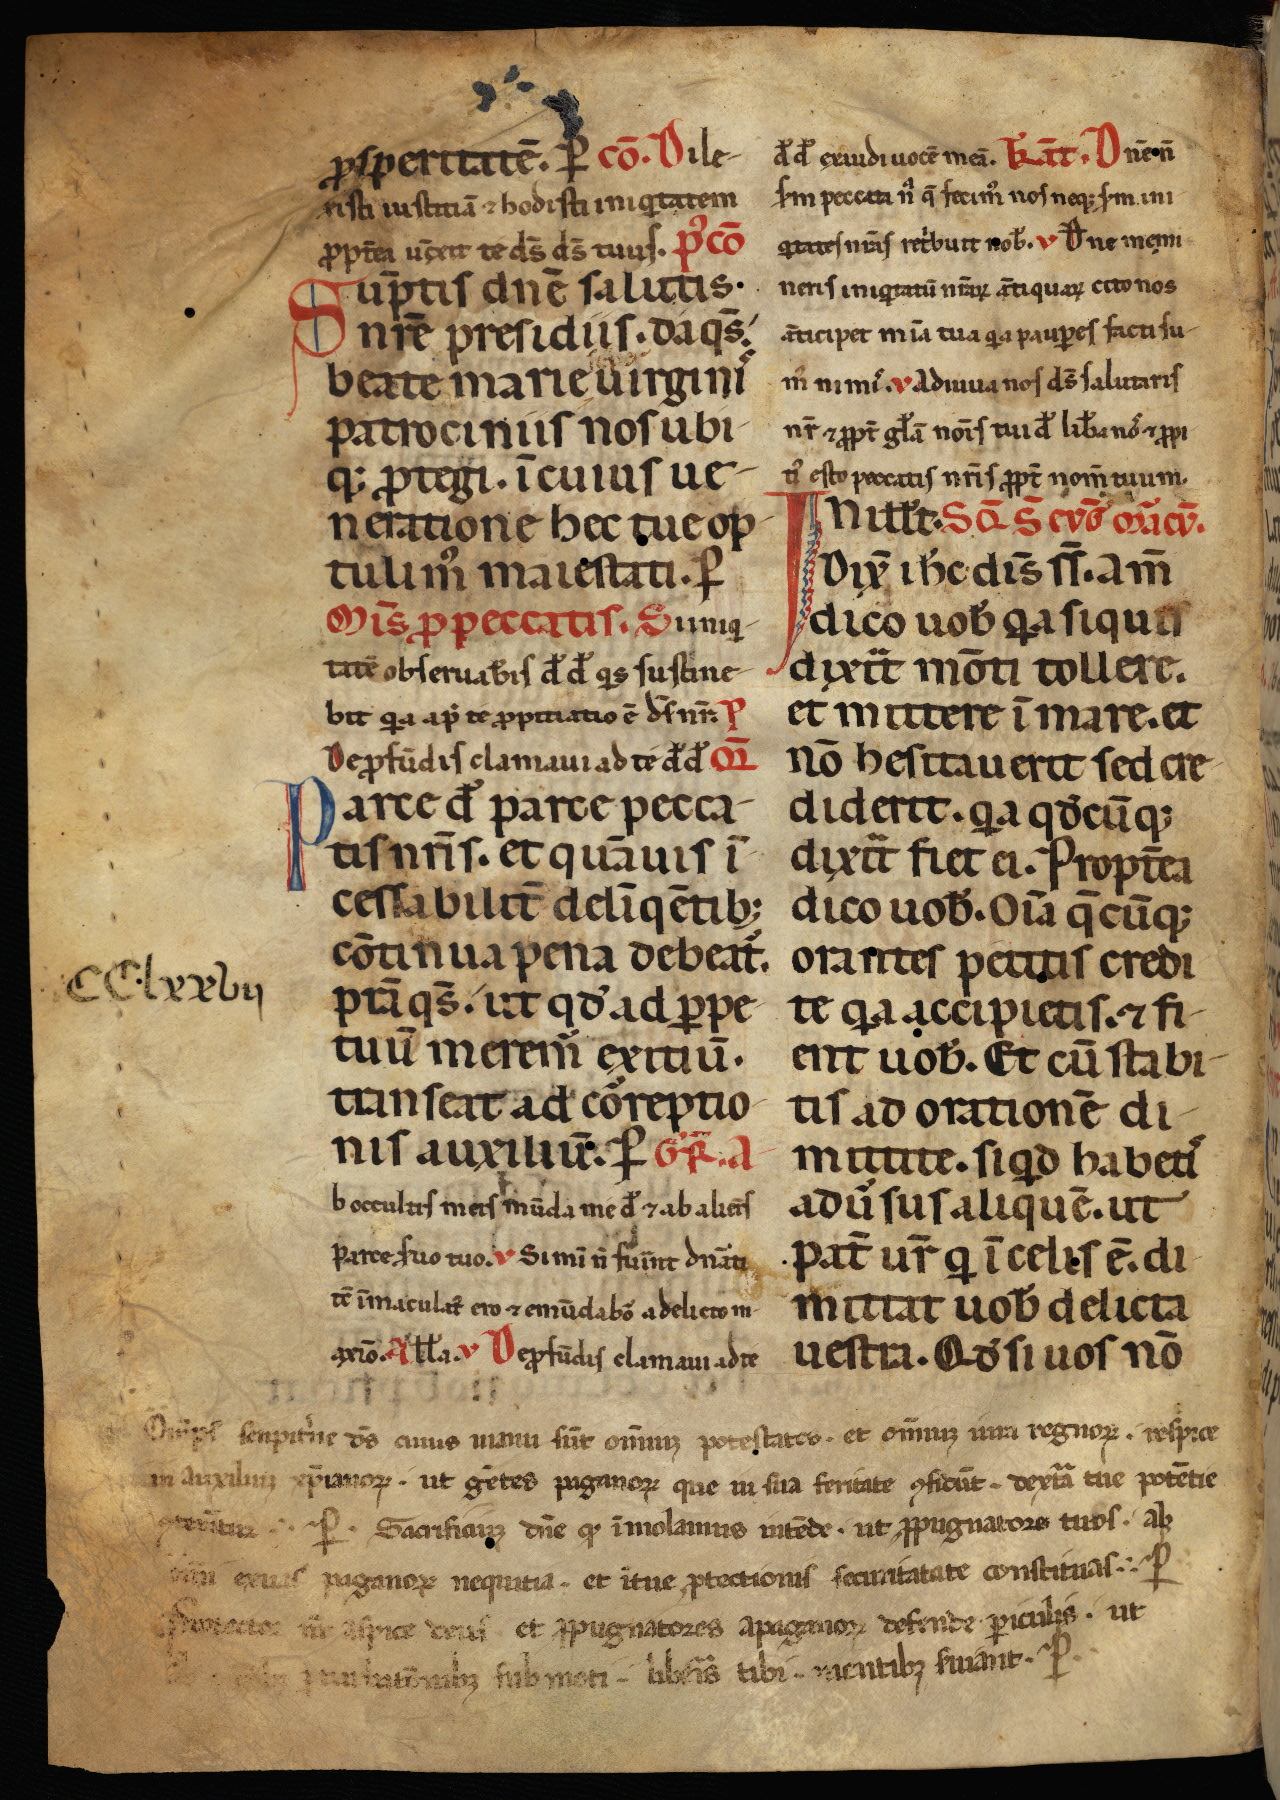 ꝓsperitatē. ꝑ cō. Dile-
xisti iustitiā ⁊ hodisti iniqͥtatem
ꝓpt̄ea ūxit te ds̄ ds̄ tuus. pꝰcō
Sūptis dn̄e salutis.
nr̄e presidiis. da qs̄.
beate marie uirginiˢ
patrociniis nos ubi-
q; ꝓtegi. ī cuius ue-
neratione hec tue op-
tulimꝰ maiestati. ꝑ
Mis̄ ꝓ peccatis. Si iniq-
tatē obseruab̄is d̄ d̄ qͥs sustine-
bit qͥa ap̄ te ꝓpitiatio ē ds̄ nr̄. P
De ꝓfūdis clamaui ad te d̄ d̄ Or̄
Parce d̄ parce pecca-
tis nr̄is. et quāuis ī
cessabilit̄ delīqētib;
cōtinua pena debeat̄.
p̄ta qs̄. ut qd̄ ad ꝑpe-
tuū meremꝰ exitiū.
transeat ad cōreptio-
nis auxiliū. ꝑ Gr̄. A
b occultis meis mūda me d̄ ⁊ ab alieis
parce ẜuo tuo. v Si mī n̄ fuīnt dn̄ati
tē īmaculatꝰ ero ⁊ emūdaboꝛ a delicto m-
axīo. All̄a. v De ꝓfūdis clamaui ad te
CClxxvii
d̄ d̄ exaudi uocē meā. Tr̄at. Dn̄e n̄
ẜm peccata nr̄a q̄ fecimꝰ nos neq; ẜm ini-
qͥtates nr̄as retͥbuit nob̄. v Dn̄e memi
neris iniqͥtatū nr̄aꝝ ātiquaꝝ cito nos
āticipet mīa tua qͥa pauꝑes facti su-
mꝰ nimiˢ. v Adiuua nos ds̄ salutaris
nr̄ ⁊ ꝓpt̄ gl̄am nōis tui d̄ lib̄a noˢ ⁊ ꝓpi
tiꝰ esto peccatis nr̄is ꝓpt̄ nom̄ tuum.
In ill̄t.
Dix̄ ih̄c dis̄ ss̄. Am̄
dico uob̄ qͥa siquis
dixit̄ mōti tollere.
et mittere ī mare. et
nō hesitauerit sed cre-
diderit. qͥa qd̄cūq;
dixit̄ fiet ei. Propt̄ea
dico uob̄. Oīa q̄cūq;
orantes petitis credi
te qͥa accipietis. ⁊ fi-
ent uob̄. Et cū stabi-
tis ad orationē di-
mittite. siqͥd habetiˢ
adūsus aliquē. ut
pat̄ ur̄ qͥ ī celis ē. di-
mittat uob̄ delicta
uestra. Qd̄ si uos nō
Om̄ps senpit̄ne ds̄ cuius manu sūt om̄iuꝫ potestates. et om̄iuꝫ iura regnoꝝ. respice
in auxiliuꝫ xp̄ianoꝝ. ut gētes paganoꝝ que in sua feritate ꝯfidūt. dext̄a tue potētie
ꝑ. Sacrificiuꝫ dn̄e qͦ īmolamus intēde. ut ꝓpugnatores tuos. ab
exuas paganoꝝ nequitia. et ī tue ꝓtectionis securitatate constituas. ꝑ
ꝓtector nr̄ aspice deus et ꝓpugnatores a paganoꝝ defende ꝑiculis. ut
sub moti. lib̄is tibi mentibꝫ ẜuiant. ꝑ